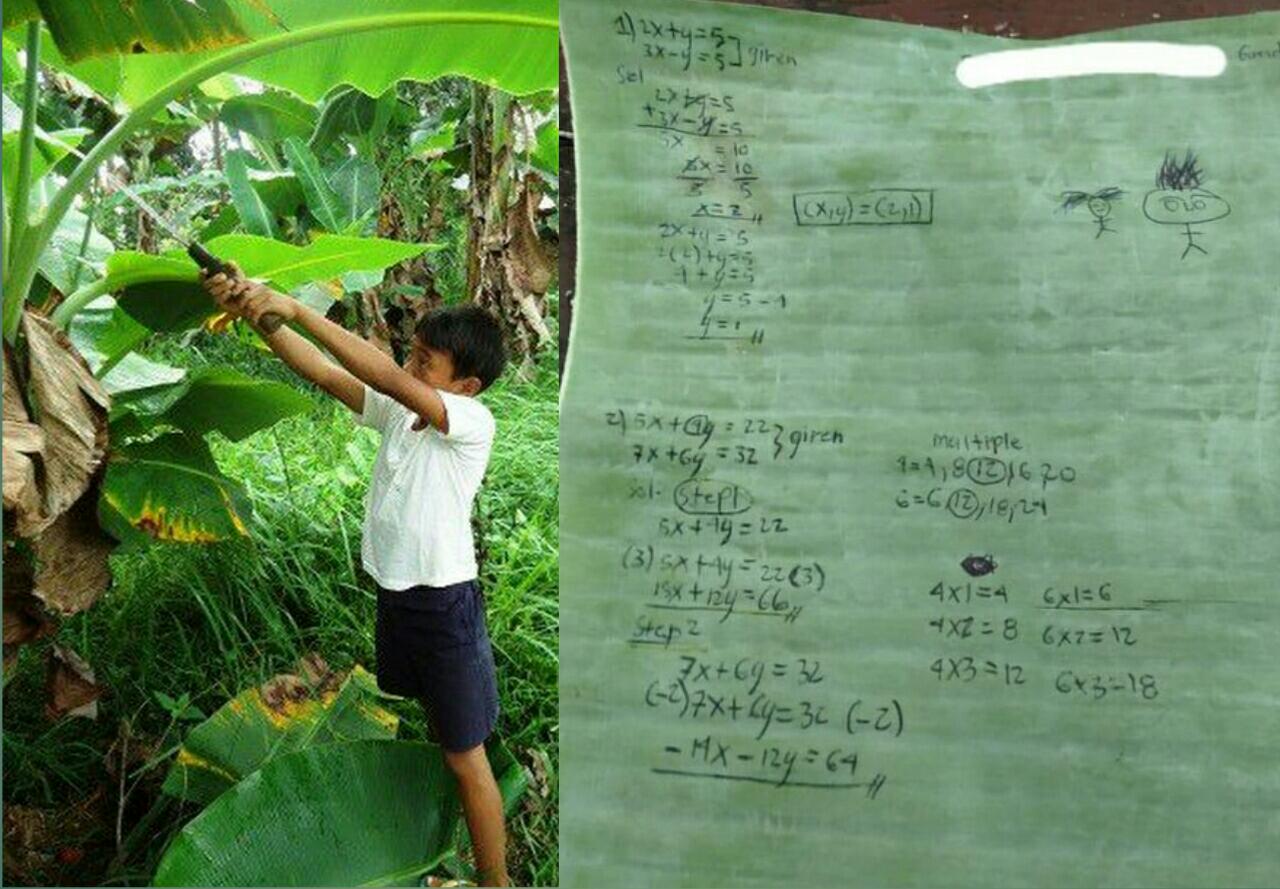 1) 2x+y=5
3x-y=5 ] given
Sol
2x+y=5
+3x-y=5
5x = 10
5x = 10
5 5
x=2
(x,y)=(2,1)
2x+y=5
2(2)+y=5
4+y=5
y=5-4
y=1
2) 5x+4y=22
7x+6y=32 } given
sol- Step1
5x+4y=22
(3) 5x+4y=22(3)
15x+12y=66
Step 2
7x+6y=32
(-2)7x+6y=32 (-2)
-14x-12y=64
multiple
4=4,8,12,16,20
6=6,12,18,24
4x1=4 6x1=6
4x2=8 6x2=12
4x3=12 6x3=18